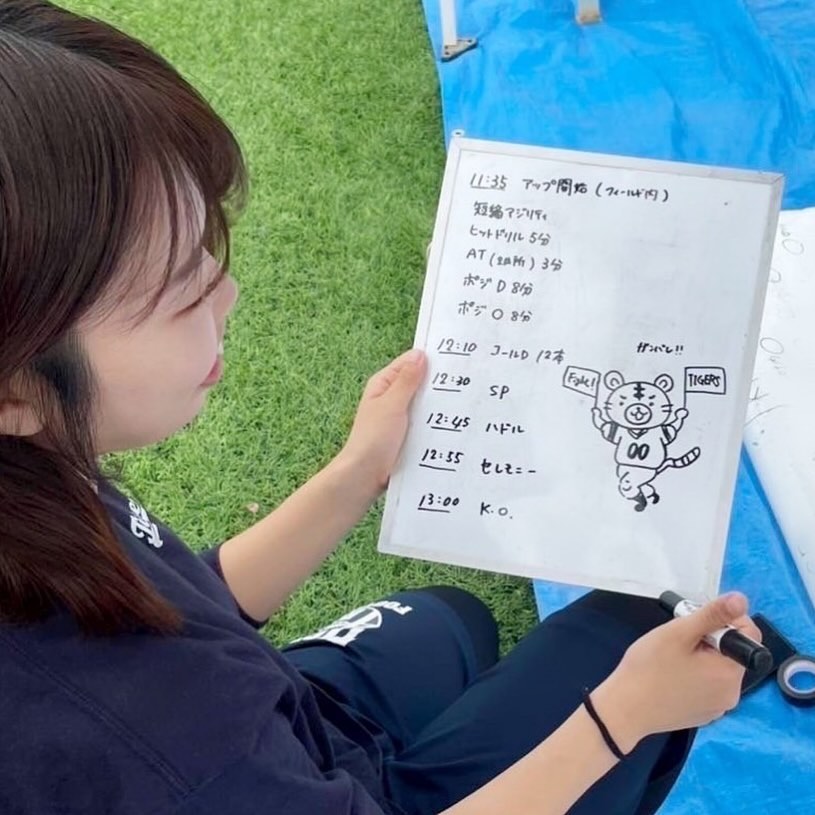 11:35 アップ開始 (フィールド内)
短縮アジリティ
ヒットドリル 5分
AT (3ヵ所) 3分
ポジ D 8分
ポジ O 8分
12:10 ゴールD 12本
12:30 SP
12:45 ハドル
12:55 セレモニー
13:00 K.O.
ガンバレ!!
Fight!
TIGERS
00